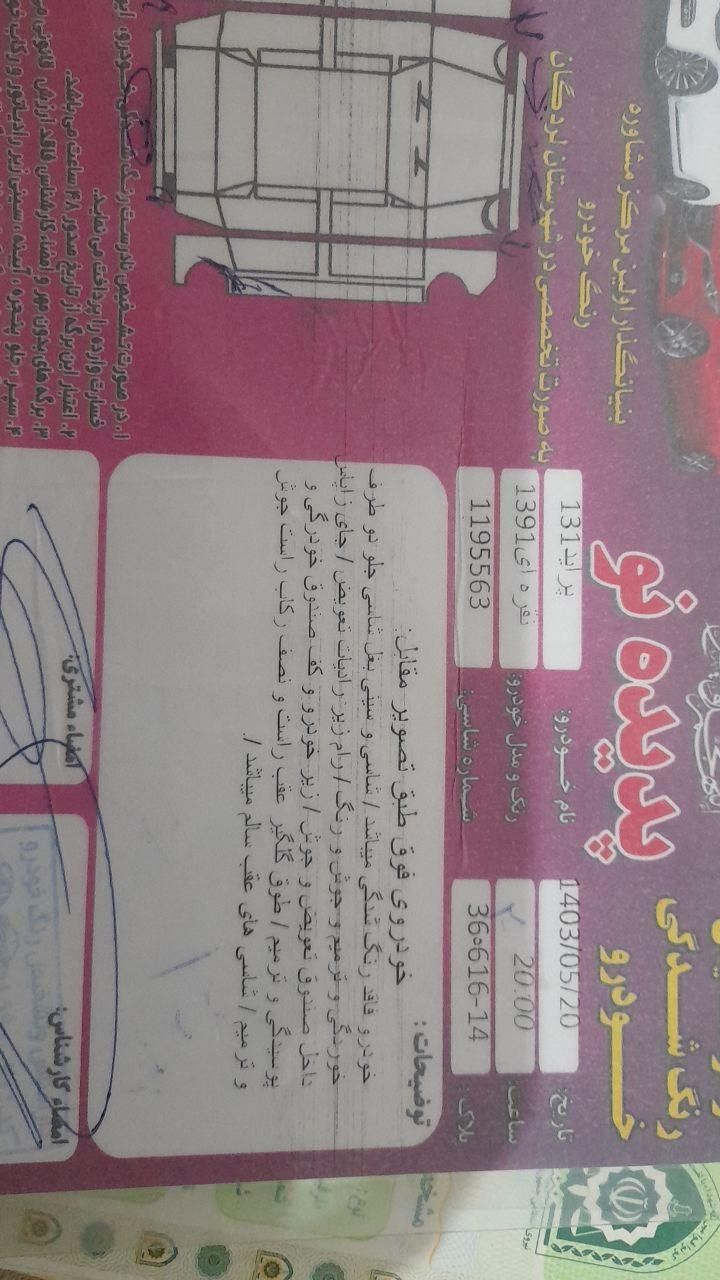 رنگ شدگی
خودرو
پدیده نو
بنیانگذار اولین مرکز مشاوره
رنگ خودرو
به صورت تخصصی در شهرستان لردگان
تاریخ: 1403/05/20
ساعت: 20:00
پلاک: 36ه616-14
نام خودرو: پراید131
رنگ و مدل خودرو: نقره ای1391
شماره شاسی: 1195563
توضیحات:
خودروی فوق طبق تصویر مقابل:
خودرو فاقد رنگ شدگی میباشد / شاسی و سینی بغل شاسی جلو دو طرف
خوردگی و ترمیم و جوش و رنگ / رام زیر رادیات تعویض / جای زاپاس
داخل صندوق تعویض و جوش / زیر خودرو و کف صندوق خوردگی و
پوسیدگی و ترمیم / طوق گلگیر عقب راست و نصف رکاب راست جوش
و ترمیم / شاسی های عقب سالم میباشد /.
خسارت وارده را پرداخت می نماید.
۲. اعتبار این برگه از تاریخ صدور ۴۸ ساعت می باشد.
امضاء کارشناس:
امضاء مشتری: